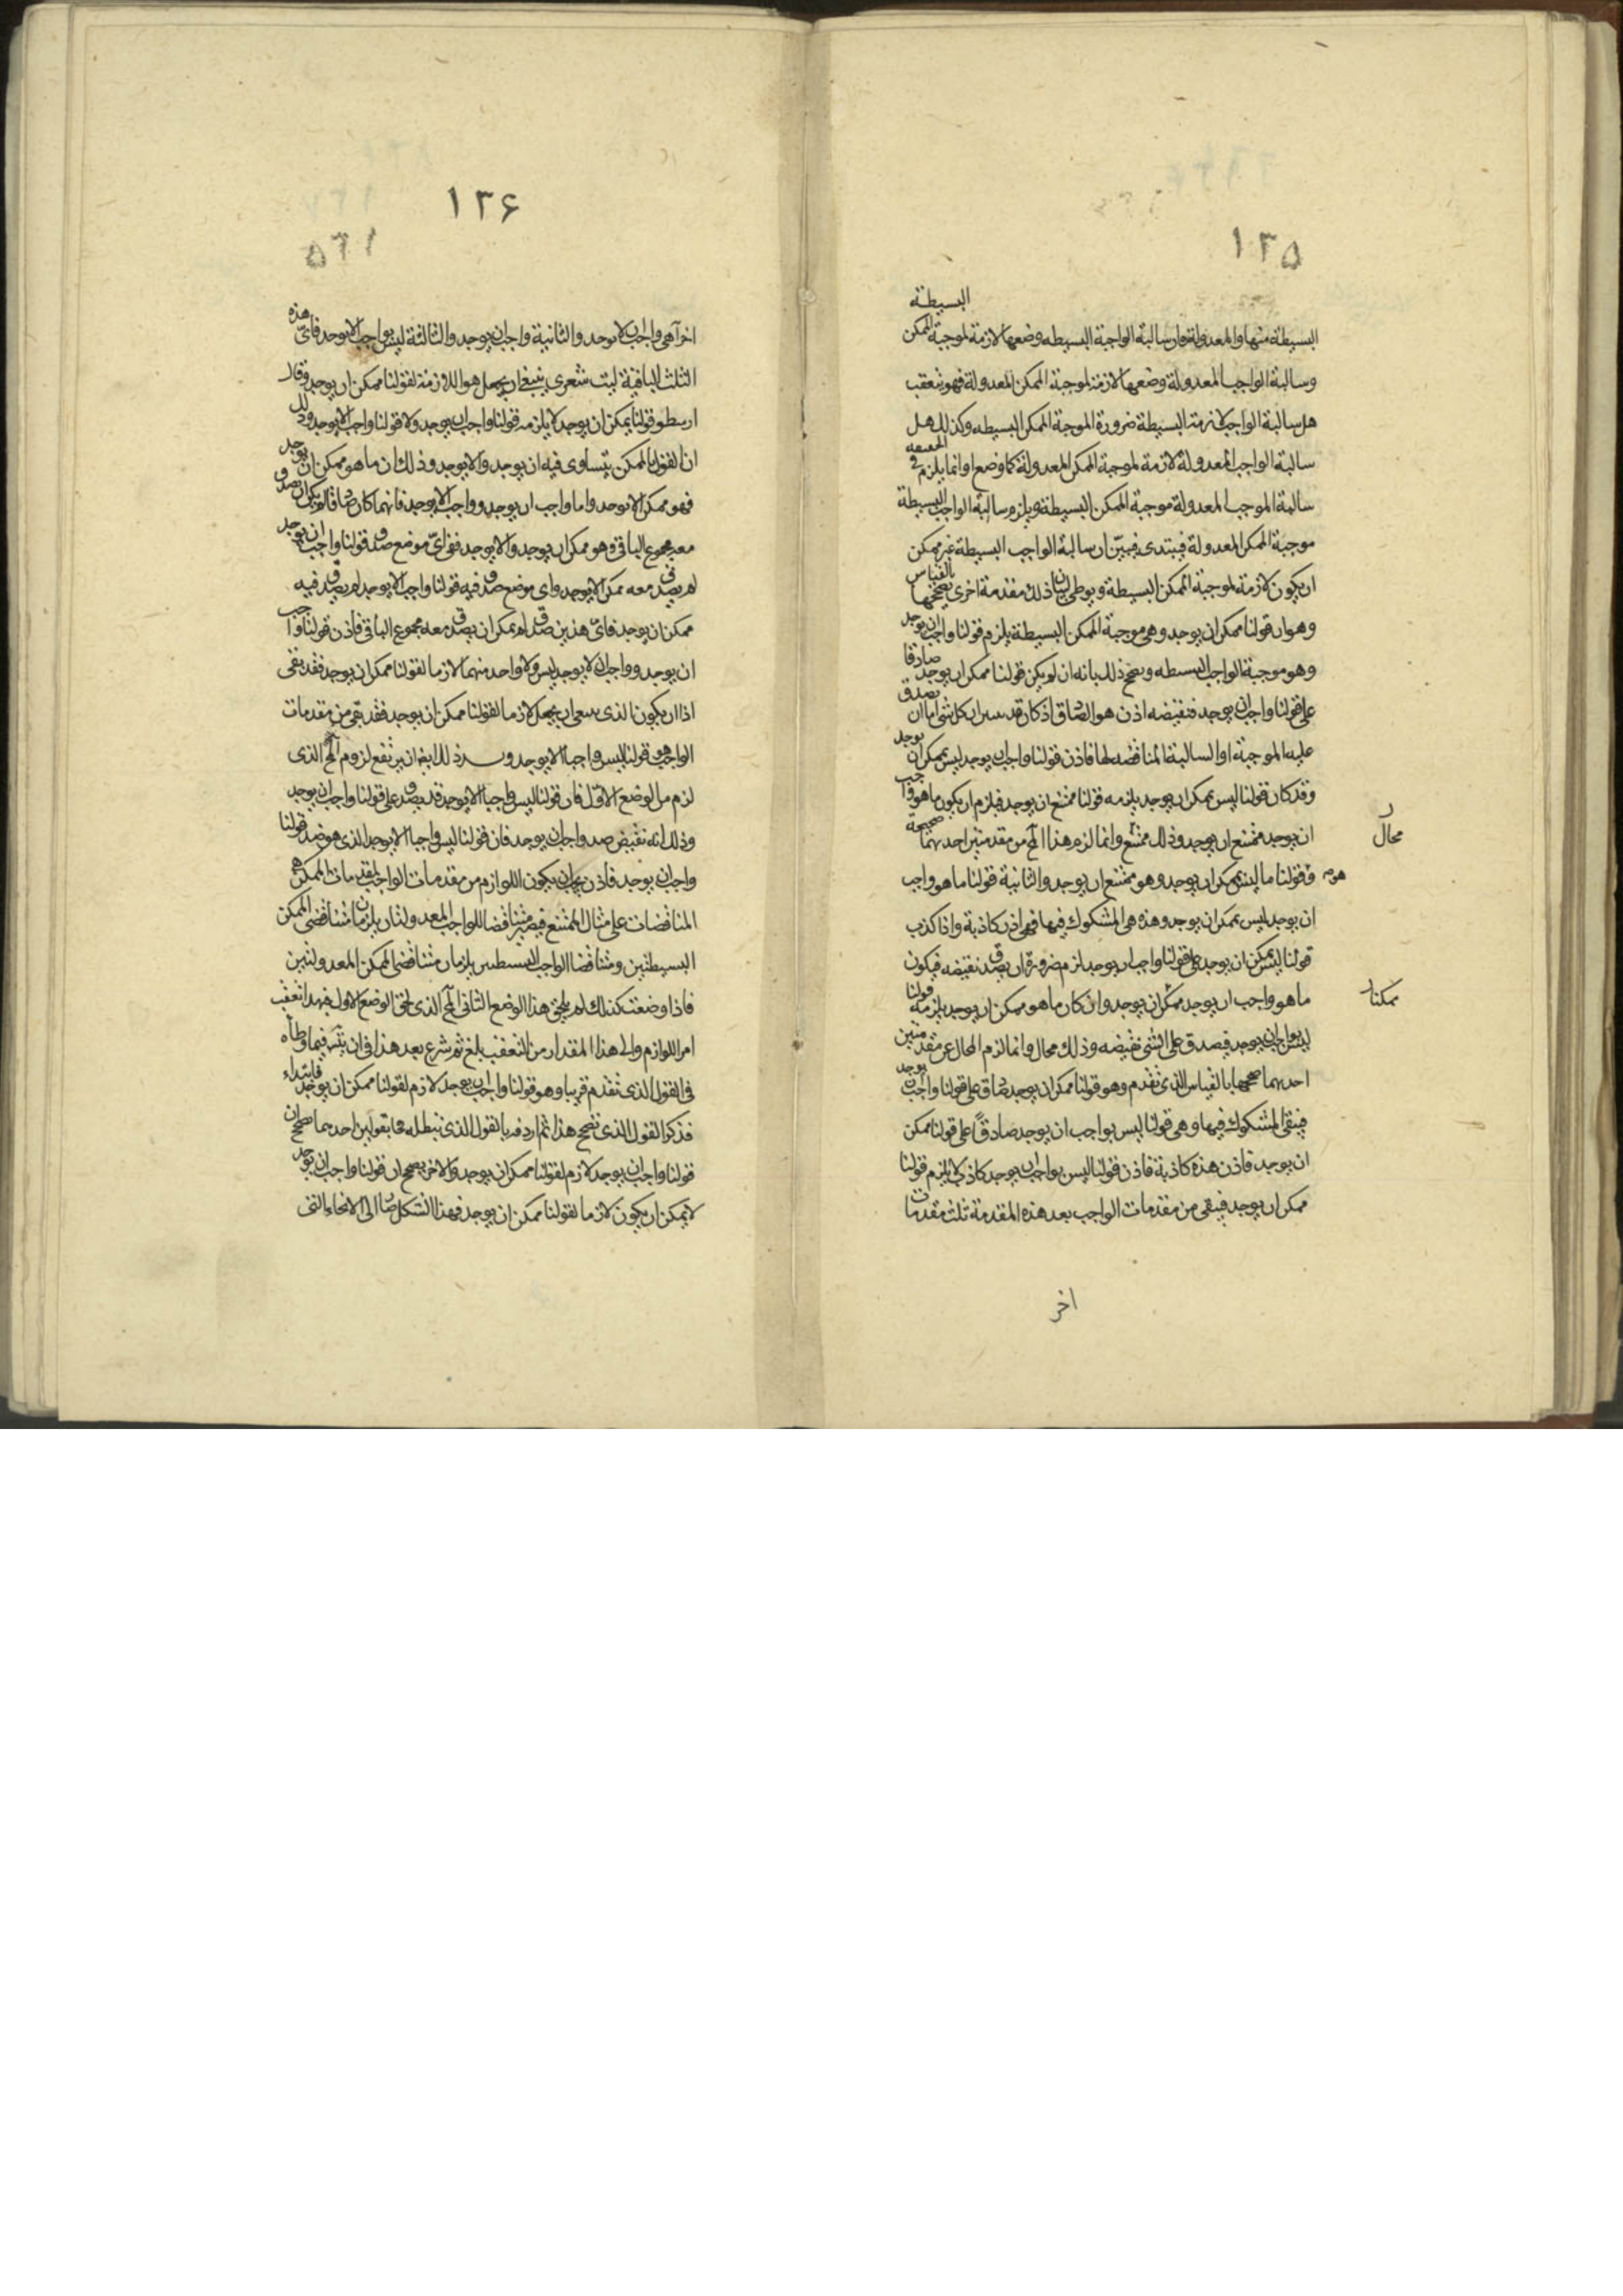 ١٢٥
البسيطة
البسيطة منها والمعدولة فان سالبة الواجبة البسيطه وضعها لازمة لموجبة الممكن
وسالبة الواجب المعدولة وضعها لازمة لموجبة الممكن المعدولة فهو يتعقب
هل سالبة الواجب لازمة البسيطة ضرورة الموجبة الممكن البسيطه وكذلك هل
سالبة الواجب المعدولة لازمة لموجبة الممكن المعدولة كما وضع او انما يلزم في الحقيقه
سالبة الموجب المعدولة موجبة الممكن البسيطة ويلزم سالبة الواجب البسيطة
موجبة الممكن المعدولة فيبتدى فيبيّن ان سالبة الواجب البسيطة غير ممكن
ان يكون لازمة لموجبة الممكن البسيطة ويوطى لبيان ذلك مقدمة اخرى يصححها بالقياس
وهو ان قولنا ممكن ان يوجد وهي موجبة الممكن البسيطة يلزم قولنا واجب ان يوجد
وهو موجبة الواجب البسيطه ويصحح ذلك بانه ان لم يكن قولنا ممكن ان يوجد صادقا
على قولنا واجب ان يوجد فنقيضه اذن هو الصادق اذ كان قد ان كل شي اما ان يصدق
عليه الموجبة او السالبة المناقضه لها فاذن قولنا واجب ان يوجد ليس يمكن ان يوجد
وقد كان قولنا ليس يمكن ان يوجد يلزمه قولنا ممتنع ان يوجد فيلزم ان يكون ما هو واجب
ان يوجد ممتنع ان يوجد وذلك ممتنع وانما لزم هذا المح من مقدمتين احديهما صحيحة
محال
وقولنا ما ليس يمكن ان يوجد وهو ممتنع ان يوجد والثانية قولنا ما هو واجب
ان يوجد ليس يمكن ان يوجد وهذه هي المشكوك فيها فهي اذن كاذبة واذا كذب
قولنا ليس يمكن ان يوجد على قولنا واجب ان يوجد لزم ضرورة ان يصدق نقيضه فيكون
ما هو واجب ان يوجد ممكن ان يوجد وان كان ما هو ممكن ان يوجد يلزمه قولنا
ليس بواجب ان يوجد فيصدق على الشي نقيضه وذلك محال وانما لزم المحال عن مقدمتين
احديهما صححها بالقياس الذي تقدم وهو قولنا ممكن ان يوجد صادق على قولنا واجب ان يوجد
فيبقى المشكوك فيها وهي قولنا ليس بواجب ان يوجد صادقًا على قولنا ممكن
ان يوجد فاذن هذه كاذبة فاذن قولنا ليس بواجب ان يوجد كاذب لا يلزم قولنا
ممكن ان يوجد فيبقى من مقدمات الواجب بعد هذه المقدمة ثلث مقدمات
اخر
١٢۶
اخر اهي واجب ان لا يوجد والثانية واجب ان يوجد والثالثة ليس بواجب الا يوجد فاىّ هذه
الثلث الباقية ليت شعرى ينبغي ان يجعل هو اللازمة لقولنا ممكن ان يوجد وقال
ارسطو قولنا يمكن ان يوجد لا يلزمه قولنا واجب ان يوجد ولا قولنا واجب الا يوجد وذلك
ان لقولنا الممكن يتساوى فيه ان يوجد والا يوجد وذلك ان ما هو ممكن ان يوجد
فهو ممكن الا يوجد واما واجب ان يوجد وواجب الا يوجد فانهما كان صادقا لم يكن ان يصدق
معه مجموع الباقي وهو ممكن ان يوجد والا يوجد ففي اىّ موضع صدق قولنا واجب ان يوجد
لم يصدق معه ممكن الا يوجد واى موضع صدق فيه قولنا واجب الا يوجد لم يصدق فيه
ممكن ان يوجد فاىّ هذين صدق لم يمكن ان يصدق معه مجموع الباقي فاذن قولنا واجب
ان يوجد وواجب ان لا يوجد ليس ولا واحد منهما لازما لقولنا ممكن ان يوجد فقد بقى
اذا ان يكون الذى ان يجعل لازما لقولنا ممكن ان يوجد فقد بقى من مقدمات
الواجب هو قولنا ليس واجبا الا يوجد ذلك ان يرتفع لزوم المح الذى
لزم من الوضع الاوّل فان قولنا ليس واجبا الا يوجد قد يصدق على قولنا واجب ان يوجد
وذلك انه نقيض ضد واجب ان يوجد فان قولنا ليس واجبا الا يوجد الذى هو ضد قولنا
واجب ان يوجد فاذن يجب ان يكون اللوازم من مقدمات الواجب لمقدمات الممكن هي
المناقضات على مثال الممتنع فيصير متناقضا للواجب المعدولتان يلزمان متناقضى الممكن
البسيطتين ومتناقضا الواجب البسيطتين يلزمان متناقضى الممكن المعدولتين
فاذا وضعت كذلك لم يلحق هذا الوضع الثاني المح الذى لحق الوضع الاول فبهذا تعقب
امر اللوازم والى هذا المقدار من التعقب بلغ ثم شرع بعد هذا في ان فيما وطأه
في القول الذى تقدم قريبا وهو قولنا واجب ان يوجد لازم لقولنا ممكن ان يوجد فابتداء
فذكر القول الذى يصحح هذا ثم اردفه بالقول الذى نبطله بقولين احدهما صحح ان
قولنا واجب ان يوجد لازم لقولنا ممكن ان يوجد والاخر يصحح ان قولنا واجب ان يوجد
لا يمكن ان يكون لازما لقولنا ممكن ان يوجد فهذا الشكل الى الانحاء التى